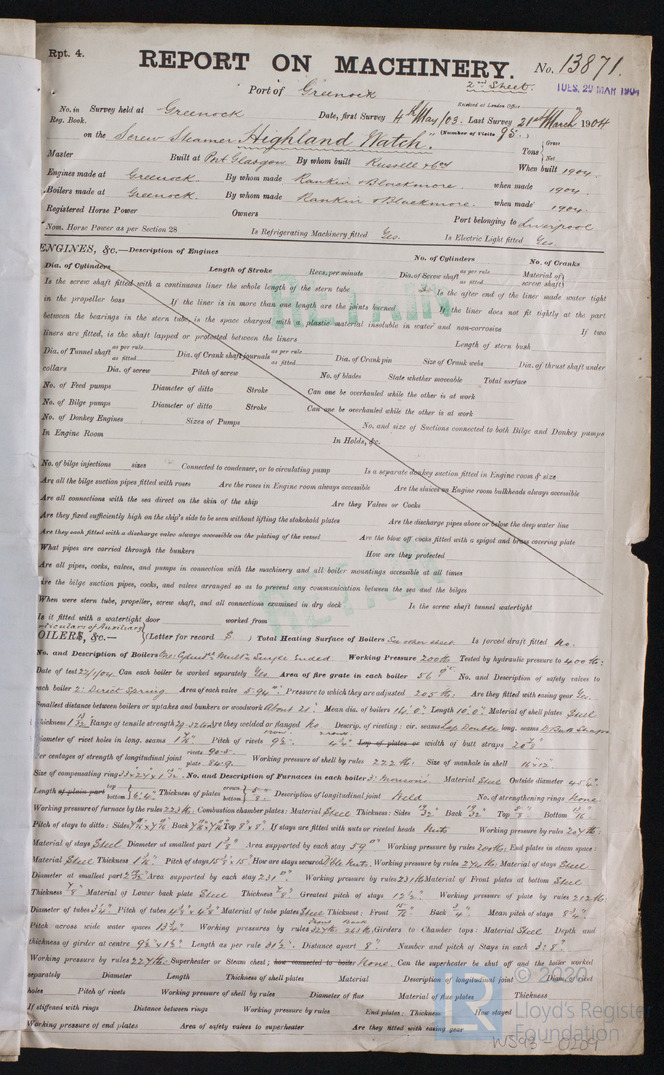 Rpt. 4.
REPORT ON MACHINERY. No. 13871.
Port of Greenock 2nd Sheet. TUES. 29 MAR 1904
Received at London Office
No. in Survey held at Greenock Date, first Survey 4th May/03. Last Survey 21st March 1904
Reg. Book. (Number of Visits 95.)
on the Screw Steamer "Highland Watch". Tons { Gross Net
Master Built at Port Glasgow By whom built Russell & Co When built 1904.
Engines made at Greenock. By whom made Rankin & Blackmore. when made 1904.
Boilers made at Greenock. By whom made Rankin & Blackmore. when made 1904.
Registered Horse Power Owners Port belonging to Liverpool
Nom. Horse Power as per Section 28 Is Refrigerating Machinery fitted Yes. Is Electric Light fitted Yes.
ENGINES, &c.—Description of Engines No. of Cylinders No. of Cranks
Dia. of Cylinders Length of Stroke Revs. per minute Dia. of Screw shaft as per rule as fitted Material of screw shaft
Is the screw shaft fitted with a continuous liner the whole length of the stern tube Is the after end of the liner made water tight
in the propeller boss If the liner is in more than one length are the joints burned If the liner does not fit tightly at the part
between the bearings in the stern tube, is the space charged with a plastic material insoluble in water and non-corrosive If two
liners are fitted, is the shaft lapped or protected between the liners Length of stern bush
Dia. of Tunnel shaft as per rule as fitted Dia. of Crank shaft journals as per rule as fitted Dia. of Crank pin Size of Crank webs Dia. of thrust shaft under
collars Dia. of screw Pitch of screw No. of blades State whether moveable Total surface
No. of Feed pumps Diameter of ditto Stroke Can one be overhauled while the other is at work
No. of Bilge pumps Diameter of ditto Stroke Can one be overhauled while the other is at work
No. of Donkey Engines Sizes of Pumps No. and size of Suctions connected to both Bilge and Donkey pumps
In Engine Room In Holds, &c.
No. of bilge injections sizes Connected to condenser, or to circulating pump Is a separate donkey suction fitted in Engine room & size
Are all the bilge suction pipes fitted with roses Are the roses in Engine room always accessible Are the sluices on Engine room bulkheads always accessible
Are all connections with the sea direct on the skin of the ship Are they Valves or Cocks
Are they fixed sufficiently high on the ship's side to be seen without lifting the stokehold plates Are the discharge pipes above or below the deep water line
Are they each fitted with a discharge valve always accessible on the plating of the vessel Are the blow off cocks fitted with a spigot and brass covering plate
What pipes are carried through the bunkers How are they protected
Are all pipes, cocks, valves, and pumps in connection with the machinery and all boiler mountings accessible at all times
Are the bilge suction pipes, cocks, and valves arranged so as to prevent any communication between the sea and the bilges
When were stern tube, propeller, screw shaft, and all connections examined in dry dock Is the screw shaft tunnel watertight
Is it fitted with a watertight door worked from
Particulars of Auxiliary
OILERS, &c.— (Letter for record S.) Total Heating Surface of Boilers See other sheet Is forced draft fitted No.
No. and Description of Boilers One: Cylindl. Multr. Single Ended Working Pressure 200 lbs Tested by hydraulic pressure to 400 lbs:
Date of test 22/1/04. Can each boiler be worked separately Yes Area of fire grate in each boiler 56 No. and Description of safety valves to
each boiler 2: Direct Spring Area of each valve 5.94 Pressure to which they are adjusted 205 lbs: Are they fitted with easing gear Yes.
Smallest distance between boilers or uptakes and bunkers or woodwork About 21" Mean dia. of boilers 14'.0" Length 10'.0" Material of shell plates Steel
Thickness Range of tensile strength 29-32 tons Are they welded or flanged No Descrip. of riveting: cir. seams Lap Double long. seams
diameter of rivet holes in long. seams Pitch of rivets Lap of plates or width of butt straps
Per centages of strength of longitudinal joint rivets 90.5 plate 84.9. Working pressure of shell by rules 222 lbs: Size of manhole in shell 16" x 12"
Size of compensating ring No. and Description of Furnaces in each boiler 3: Morison's Material Steel Outside diameter
Length of plain part top bottom Thickness of plates crown bottom Description of longitudinal joint Weld No. of strengthening rings None.
Working pressure of furnace by the rules 223 lbs. Combustion chamber plates: Material Steel Thickness: Sides Back Top Bottom
Pitch of stays to ditto: Sides Back Top 8" x 8". If stays are fitted with nuts or riveted heads Nuts Working pressure by rules 207 lbs:
Material of stays Steel Diameter at smallest part Area supported by each stay 59 Working pressure by rules 200 lbs: End plates in steam space:
Material Steel Thickness Pitch of stays How are stays secured Dble Nuts. Working pressure by rules Material of stays Steel
Diameter at smallest part Area supported by each stay 231 Working pressure by rules 231 lbs Material of Front plates at bottom Steel
Thickness Material of Lower back plate Steel Thickness Greatest pitch of stays 12½" Working pressure of plate by rules 212 lbs
Diameter of tubes Pitch of tubes Material of tube plates Steel Thickness: Front Back Mean pitch of stays
Pitch across wide water spaces Working pressures by rules Front Back Girders to Chamber tops: Material Steel Depth and
thickness of girder at centre Length as per rule Distance apart 8" Number and pitch of Stays in each 3: 8".
Working pressure by rules 227 lbs: Superheater or Steam chest; how connected to boiler None. Can the superheater be shut off and the boiler worked
separately Diameter Length Thickness of shell plates Material Description of longitudinal joint Diam. of rivet
holes Pitch of rivets Working pressure of shell by rules Diameter of flue Material of flue plates Thickness
If stiffened with rings Distance between rings Working pressure by rules End plates: Thickness How stayed
Working pressure of end plates Area of safety valves to superheater Are they fitted with easing gear
RETAIN
RETAIN
LR © 2020
Lloyd's Register
Foundation
WS93-0209